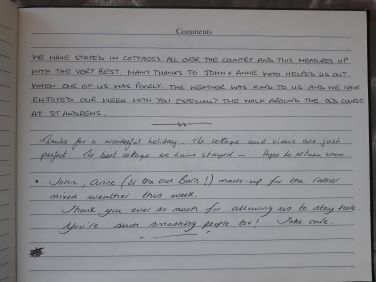 Comments
WE HAVE STAYED IN COTTAGES ALL OVER THE COUNTRY AND THIS MEASURES UP
WITH THE VERY BEST. MANY THANKS TO JOHN & ANNE WHO HELPED US OUT
WHEN ONE OF US WAS POORLY. THE WEATHER WAS KIND TO US AND WE HAVE
ENJOYED OUR WEEK WITH YOU ESPECIALLY THE WALK AROUND THE OLD COURSE
AT ST ANDREWS.
Thanks for a wonderful holiday. The cottage and views are just
perfect. The best cottage we have stayed in. Hope to return soon.
• John, Anne (& the old Barn!) made up for the rather
mixed weather this week.
Thank you ever so much for allowing us to stay here
You're such smashing people too! Take care.